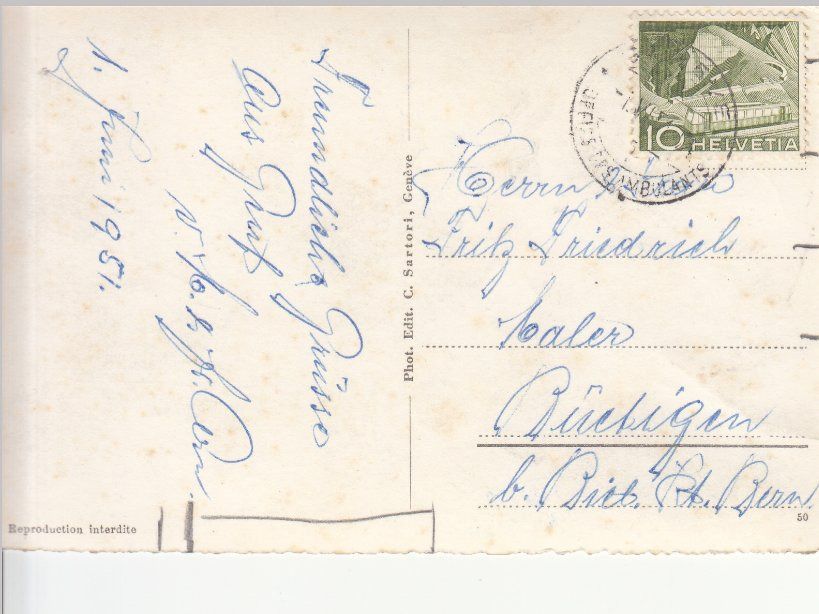 1. Juni 1951.
Freundliche Grüsse
aus Genf
v.
Phot. Edit. C. Sartori, Genève
10 HELVETIA
AMBULANTS
Herrn
Fritz Friedrich
Maler
Büetigen
b. Biel. Kt. Bern
50
Reproduction interdite